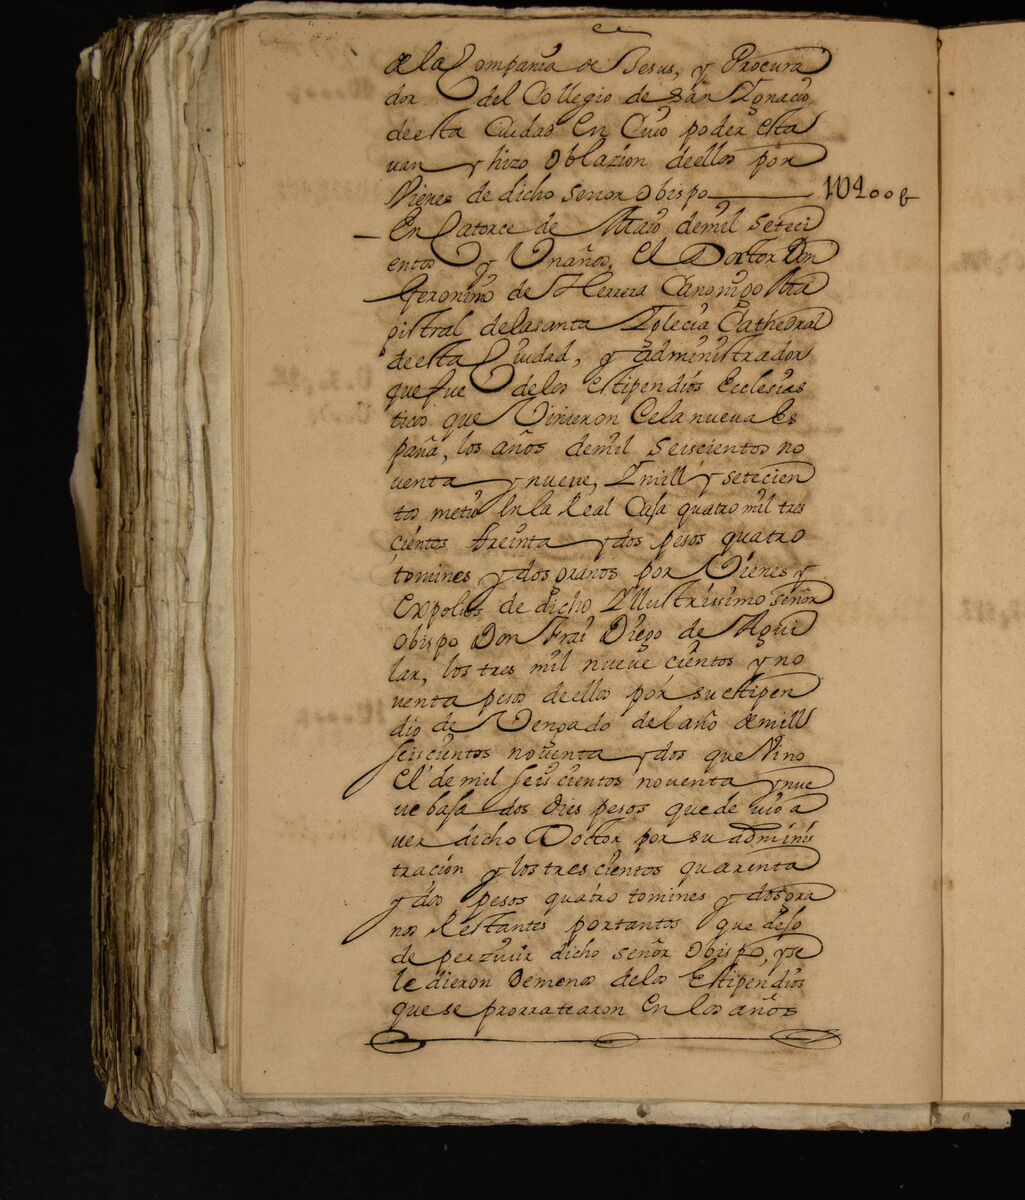 de la Compañia de Jesus, y Procura
dor del Collegio de San Ygnacio
de esta Ciudad En Cuio poder esta
uan y hizo Oblazion de ellos por
Vienes de dicho señor Obispo
En Catorce de Maio de mil seteci
entos y Un años, el Doctor Don
Geronimo de Herrera Canonigo Ma
gistral de la santa Yglecia Cathedral
de esta Ciudad, y administrador
que fue de los estipendios Ecclesias
ticos que Vinieron de la nueva Es
paña, los años de mil seiscientos no
uenta y nueve, Y mill y setecien
tos metio En la Real Caja quatro mil tres
cientos treinta y dos pesos quatro
tomines y dos granos por Vienes y
Expolios de dicho Yllustrissimo señor
Obispo Don Frai Diego de Agui
lar, los tres mil nueve cientos y no
uenta pesos de ellos por su estipen
dio de Vengado del año de mill
seiscientos noventa y dos que Vino
El de mil seis cientos noventa y nue
ue baja dos dies pesos que de uio a
uer dicho Doctor por su adminis
tración y los tres cientos quarenta
y dos pesos quatro tomines y dos gra
nos Restantes por tantos que dejo
de perzivir dicho señor Obispo, y se
le dieron de menos de los Estipendios
que se prorratearon En los años